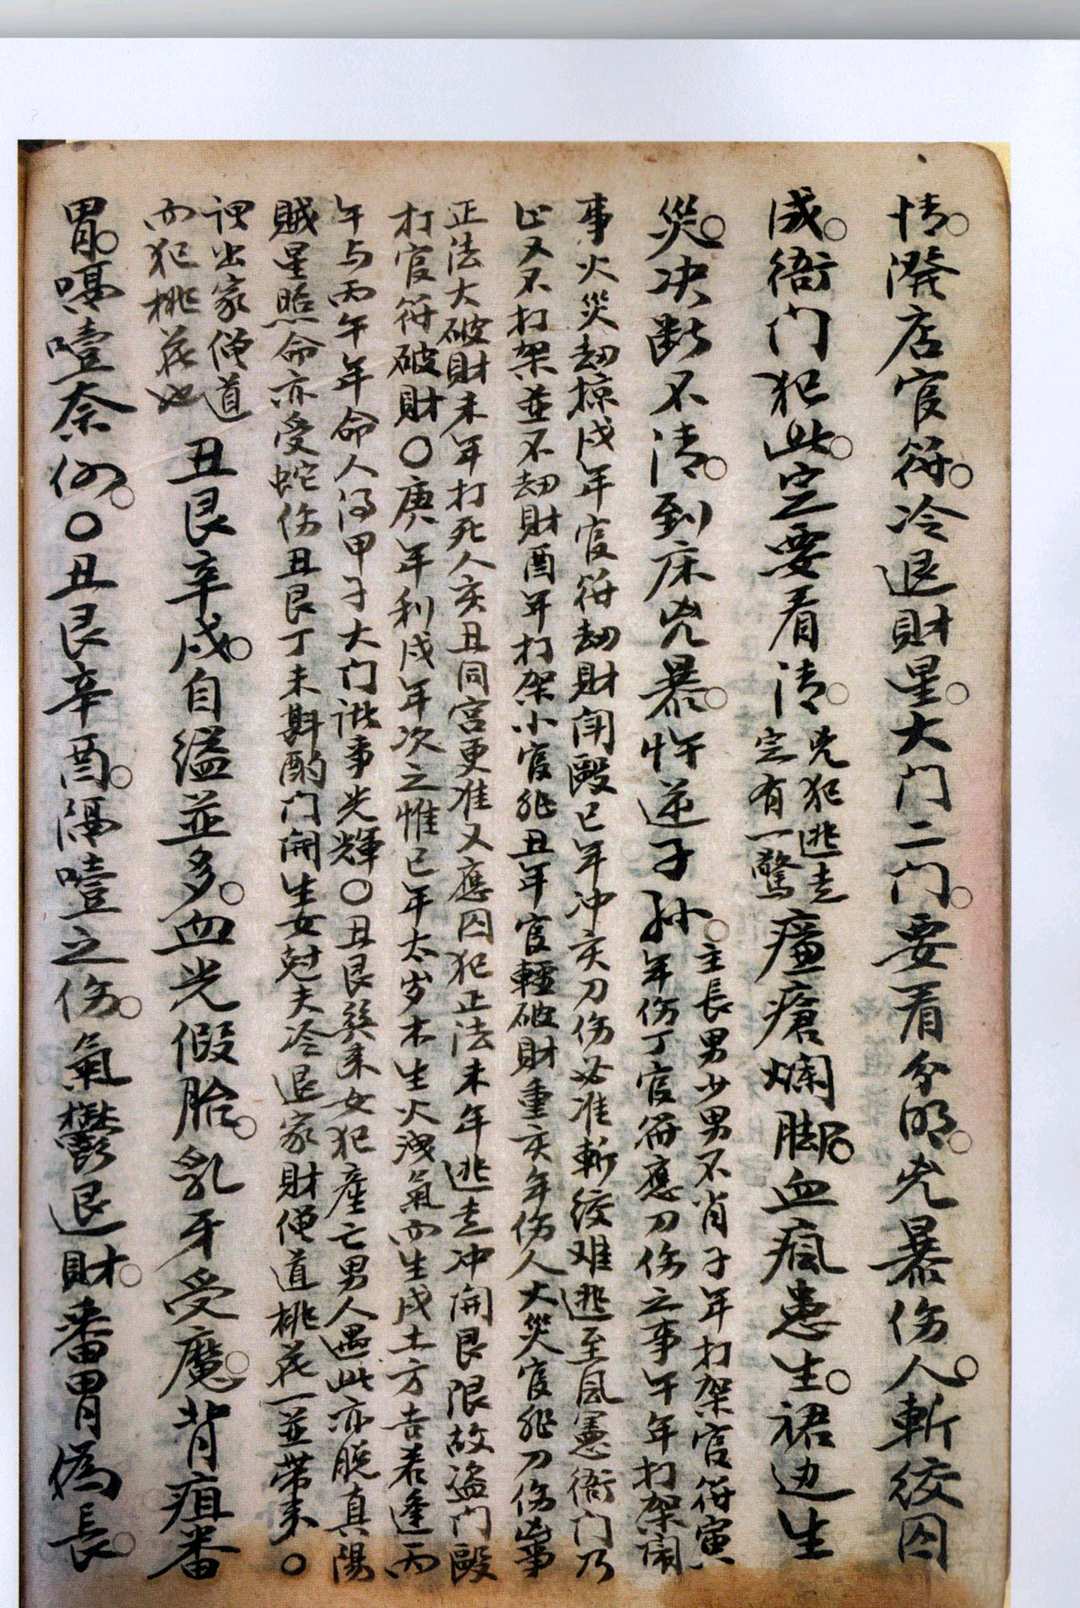 情。潑店官符。冷退財星。大门二门。要看分明。兇暴伤人。斬绞囚
成。衙门犯此。定要看清。兇犯逃走
定有一驚瘇瘡爛脚。血瘋患生。裙边生
災。决断不清。到床兇暴。忤逆子孙。主長男少男不肖子年打架官符寅
年伤丁官符應刀伤之事午年打架闹
事火災劫掠戌年官符劫財闹毆巳年冲亥刀伤必准斬绞难逃至風憲衙门乃
止又不打架並不劫財酉年打架小官非丑年官輕破財重亥年伤人大災官非刀伤凶事
正法大破財未年打死人亥丑同宮更准又應囚犯正法未年逃走冲闹艮限故盗门毆
打官符破財〇庚年利戌年次之惟巳年太岁木生火洩氣而生戌土方吉若逢丙
午与丙午年命人得甲子大门訟事光輝〇丑艮癸未女犯産亡男人遇此亦脱真陽
賊星照命亦受蛇伤丑艮丁未斟酌门闹生女尅夫冷退家財僧道桃花一並帶来〇
課出家僧道
而犯桃花也丑艮辛戌。自縊並多。血光假胎。乳牙受魔。背疽番
胃。嗝噎奈何。〇丑艮辛酉。隔噎之伤。氣鬱退財。番胃偽長。